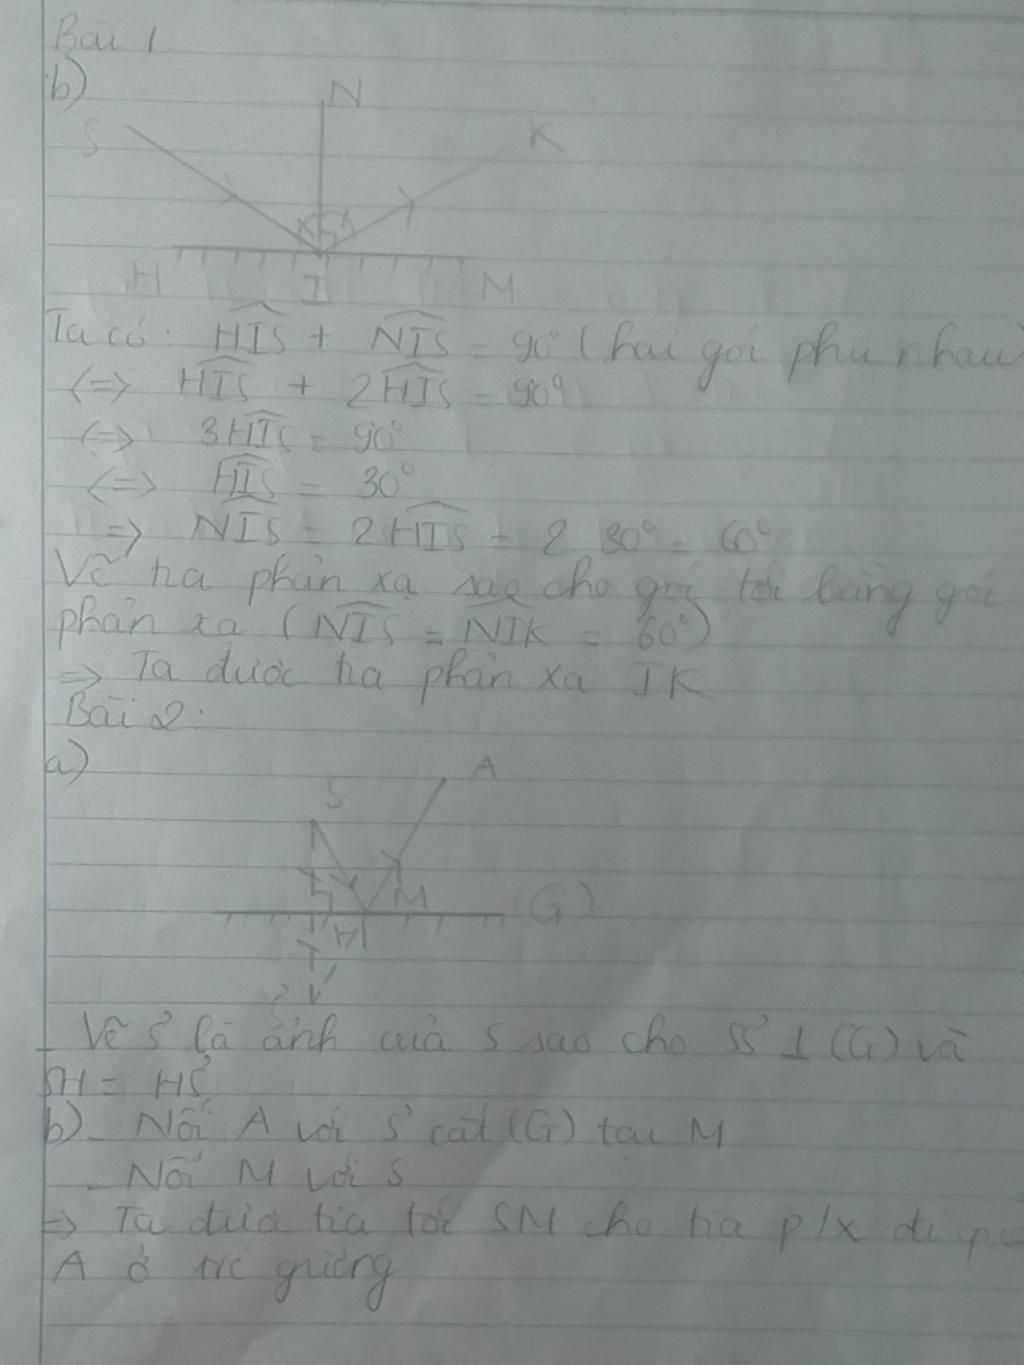 Bài 1
b)
N
S
K
H
I
M
Ta có: HIS + NIS = 90° (hai góc phụ nhau)
<=> HIS + 2HIS = 90°
<=> 3HIS = 90°
<=> HIS = 30°
=> NIS = 2HIS = 2 30° = 60°
Vẽ tia phản xạ sao cho góc tới bằng góc
phản xạ (NIS = NIK = 60°)
=> Ta được tia phản xạ IK
Bài 2:
a)
A
S
M
(G)
H
S'
Vẽ S' là ảnh của S sao cho SS' ⊥ (G) và
SH = HS'
b) - Nối A với S' cắt (G) tại M
- Nối M với S
=> Ta được tia tới SM cho tia p/x đi qua
A ở trc gương